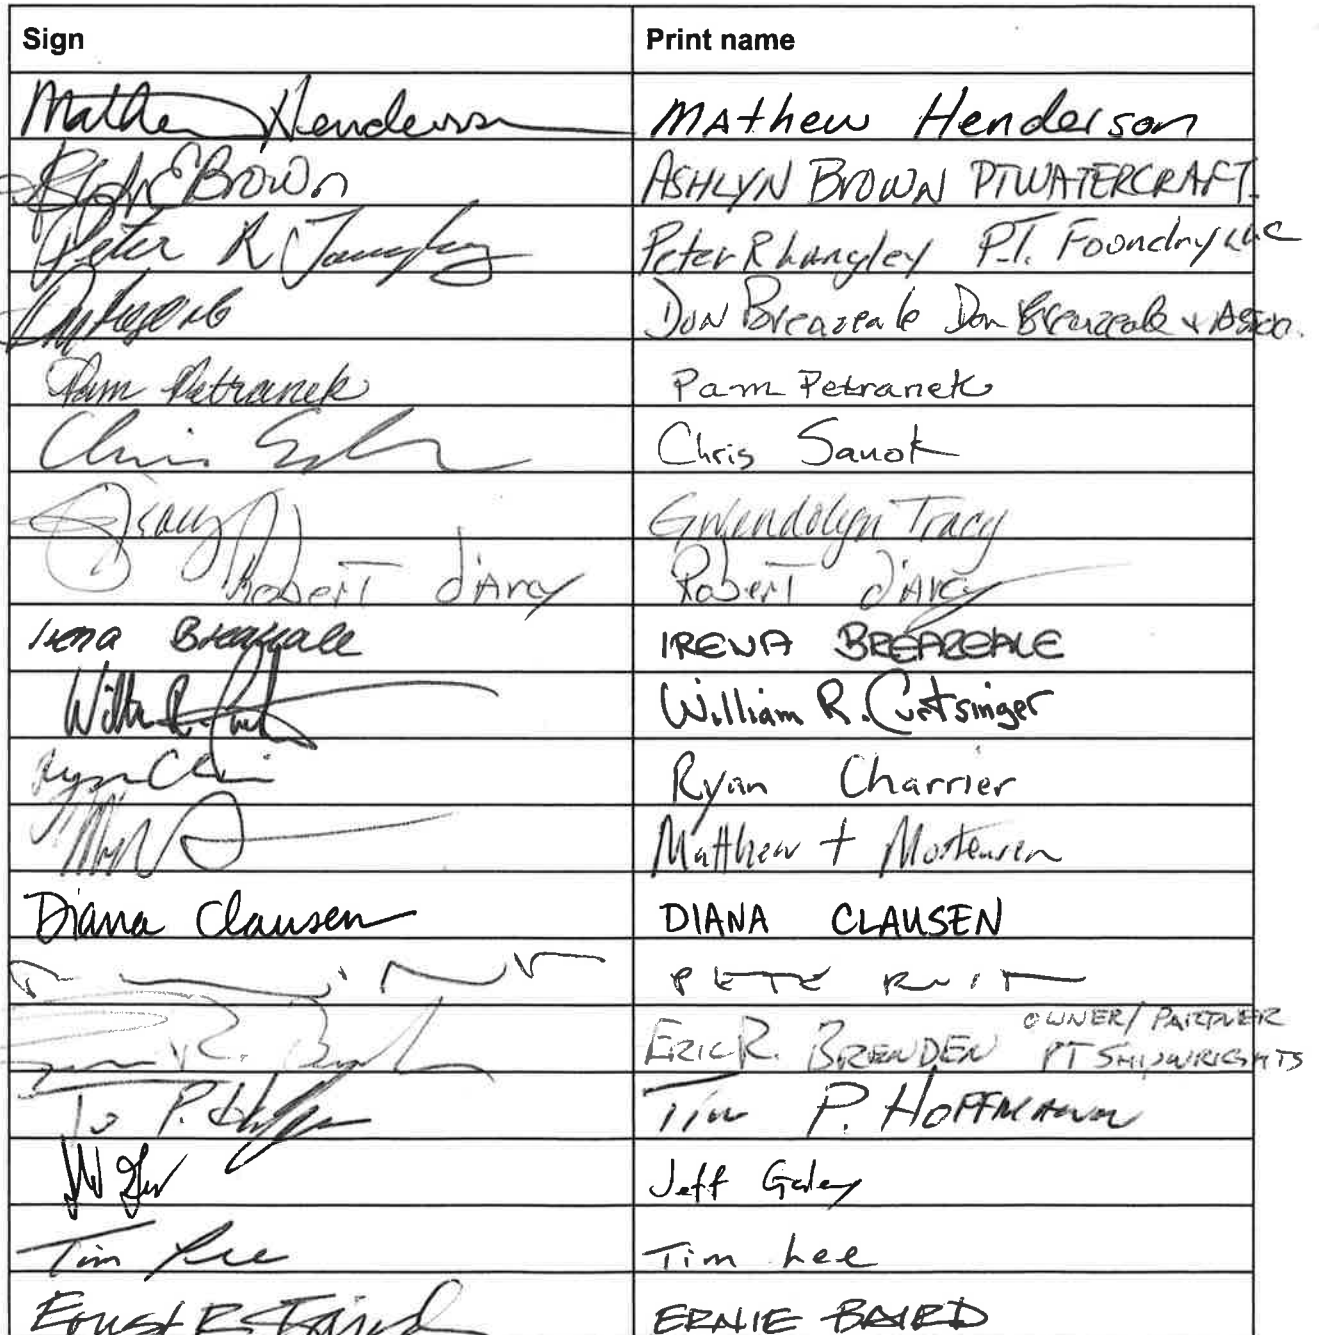 Sign Print name
Mathew Henderson Mathew Henderson
Brown ASHLYN BROWN PTWATERCRAFT
Peter R Langley Peter R Langley P.T. Foundry LLC
Don Breazeale Don Breazeale & Assoc.
Pam Petranek Pam Petranek
Chris Chris Sanok
Tracy Gwendolyn Tracy
Robert d'Arcy Robert d'Arcy
Irena Breazeale IRENA BREAZEALE
William R. Curtsinger
Ryan Ryan Charrier
Matthew Mortensen
Diana Clausen DIANA CLAUSEN
PETE
R. ERIC R. BRENDEN OWNER/PARTNER
PT SHIPWRIGHTS
P. Tim P. HOFFMANN
Jeff Galey
Tim Lee Tim Lee
Baird ERNIE BAIRD